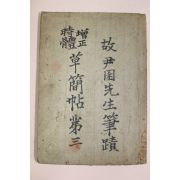 故尹用先生筆蹟
增正
時體
草簡帖第三